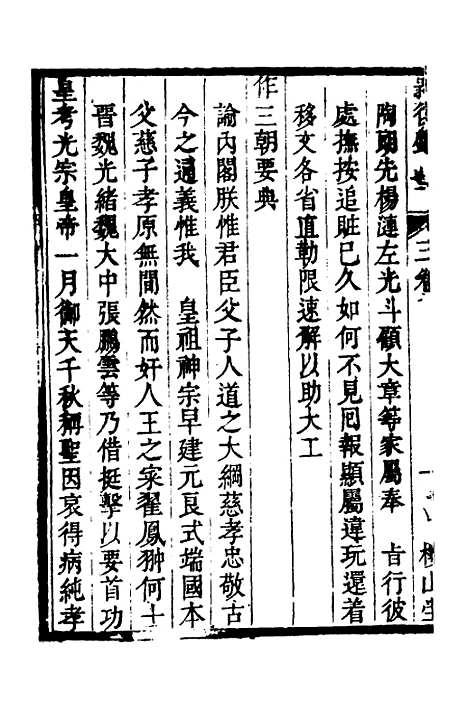 三卷
陶朗先楊漣左光斗顧大章等家屬奉　旨行彼
處撫按追賍已久如何不見囘報顯屬違玩還着
移文各省直勒限速解以助大工
作三朝要典
諭內閣朕惟君臣父子人道之大綱慈孝忠敬古
今之通義惟我　皇祖神宗早建元良式端國本
父慈子孝原無間然而奸人王之寀翟鳳翀何士
晉魏光緒魏大中張鵬雲等乃借挺擊以要首功
皇考光宗皇帝一月御天千秋稱聖因哀得病純孝